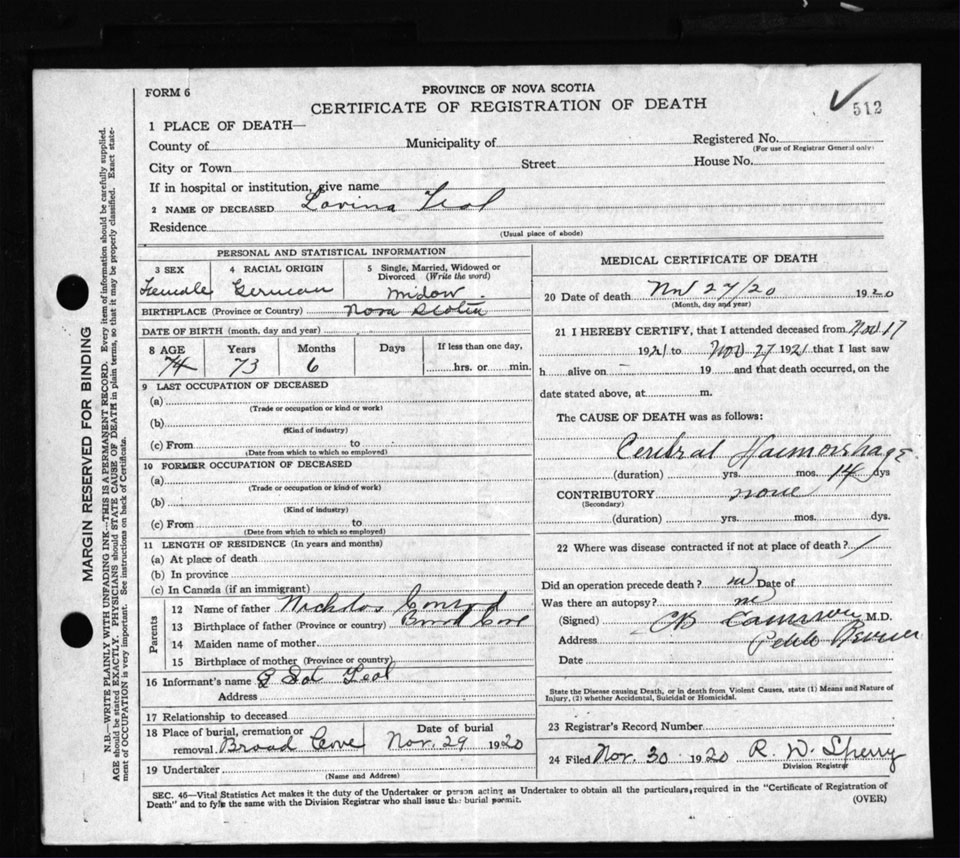 FORM 6
PROVINCE OF NOVA SCOTIA
CERTIFICATE OF REGISTRATION OF DEATH
512
1 PLACE OF DEATH—
County of Municipality of Registered No.
(For use of Registrar General only)
City or Town Street House No.
If in hospital or institution, give name
2 NAME OF DECEASED Lovina Teal
Residence
(Usual place of abode)
PERSONAL AND STATISTICAL INFORMATION
3 SEX 4 RACIAL ORIGIN 5 Single, Married, Widowed or Divorced (Write the word)
Female German Widow.
BIRTHPLACE (Province or Country) Nova Scotia
DATE OF BIRTH (month, day and year)
8 AGE Years Months Days If less than one day,
74 73 6 hrs. or min.
9 LAST OCCUPATION OF DECEASED
(a)
(Trade or occupation or kind or work)
(b)
(Kind of industry)
(c) From to
(Date from which to which so employed)
10 FORMER OCCUPATION OF DECEASED
(a)
(Trade or occupation or kind of work)
(b)
(Kind of industry)
(c) From to
(Date from which to which so employed)
11 LENGTH OF RESIDENCE (In years and months)
(a) At place of death
(b) In province
(c) In Canada (if an immigrant)
Parents
12 Name of father Nicholas Conrad
13 Birthplace of father (Province or country) Broad Cove
14 Maiden name of mother
15 Birthplace of mother (Province or country)
16 Informant's name Sol Teal
Address
17 Relationship to deceased
18 Place of burial, cremation or removal Broad Cove
Date of burial
Nov. 29 1920
19 Undertaker
(Name and Address)
MEDICAL CERTIFICATE OF DEATH
20 Date of death Nov 27/20 1920
(Month, day and year)
21 I HEREBY CERTIFY, that I attended deceased from Nov 17
1921 to Nov 27 1921 that I last saw
h alive on – 19 and that death occurred, on the
date stated above, at m.
The CAUSE OF DEATH was as follows:
Cerebral Haemorrhage
(duration) yrs. mos. 14 dys
CONTRIBUTORY none
(Secondary)
(duration) yrs. mos. dys.
22 Where was disease contracted if not at place of death? /
Did an operation precede death? no Date of
Was there an autopsy? no
(Signed) Cameron M.D.
Address Petite Riviere
Date
State the Disease causing Death, or in death from Violent Causes, state (1) Means and Nature of
Injury, (2) whether Accidental, Suicidal or Homicidal.
23 Registrar's Record Number
24 Filed Nov. 30 1920 R. W. Sperry
Division Registrar
SEC. 46—Vital Statistics Act makes it the duty of the Undertaker or person acting as Undertaker to obtain all the particulars, required in the "Certificate of Registration of
Death" and to fyle the same with the Division Registrar who shall issue the burial permit.
(OVER)
MARGIN RESERVED FOR BINDING
N.B.—WRITE PLAINLY WITH UNFADING INK—THIS IS A PERMANENT RECORD. Every item of information should be carefully supplied.
AGE should be stated EXACTLY. PHYSICIANS should STATE CAUSE OF DEATH in plain terms, so that it may be properly classified. Exact state-
ment of OCCUPATION is very important. See instructions on back of Certificate.